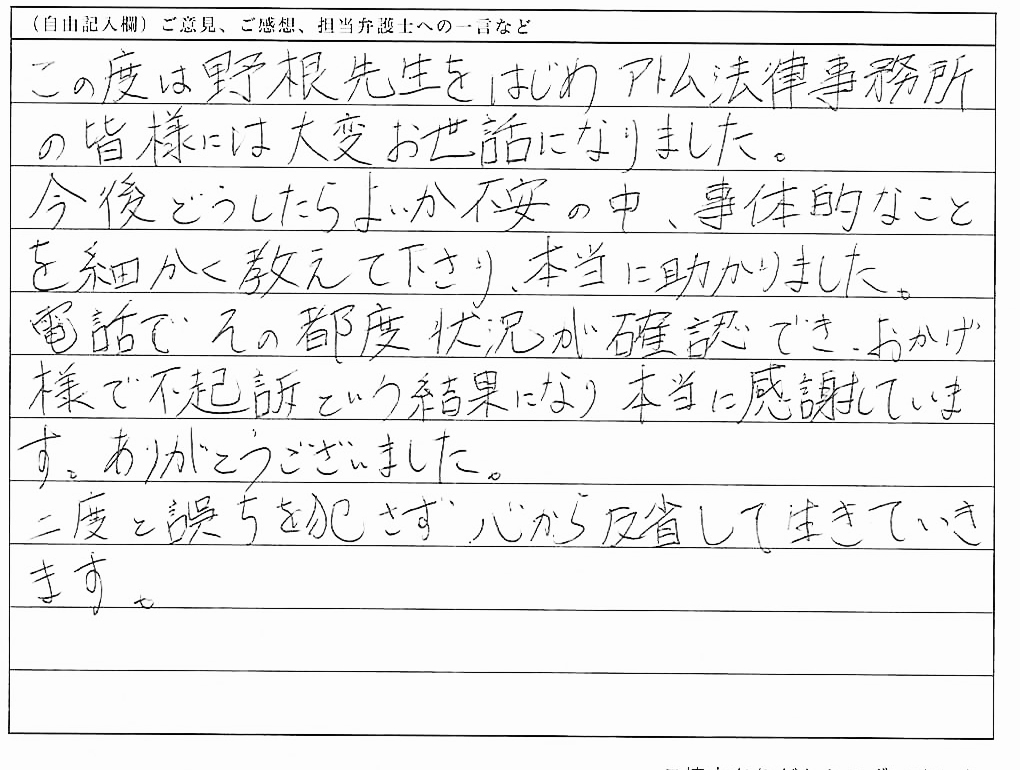 （自由記入欄）ご意見、ご感想、担当弁護士への一言など
この度は野根先生をはじめ アトム法律事務所
の皆様には大変お世話になりました。
今後どうしたらよいか不安の中、事体的なこと
を細かく教えて下さり、本当に助かりました。
電話でその都度状況が確認でき、おかげ
様で不起訴という結果になり本当に感謝していま
す。ありがとうございました。
二度と誤ちを犯さず心から反省して生きていき
ます。